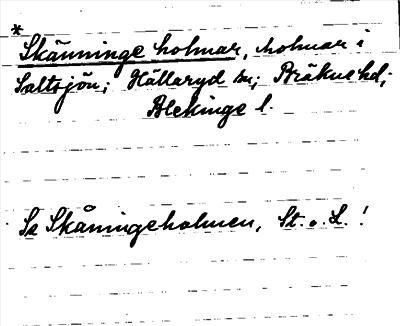 *
Skänninge holmar, holmar i
Saltsjön; Hällaryd sn; Bräkne hd;
Blekinge l.
Se Skåningeholmen, St. o. L. !